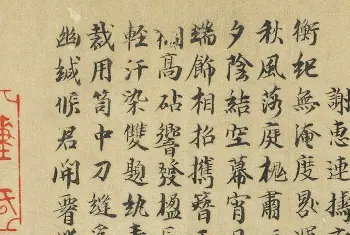 謝惠連擣
衡紀無淹度晷運
秋風落庭槐肅
夕陰結空幕宵月
端飾相招攜簪
高砧響發楹
輕汗染雙題紈素
裁用笥中刀縫
幽緘候君開